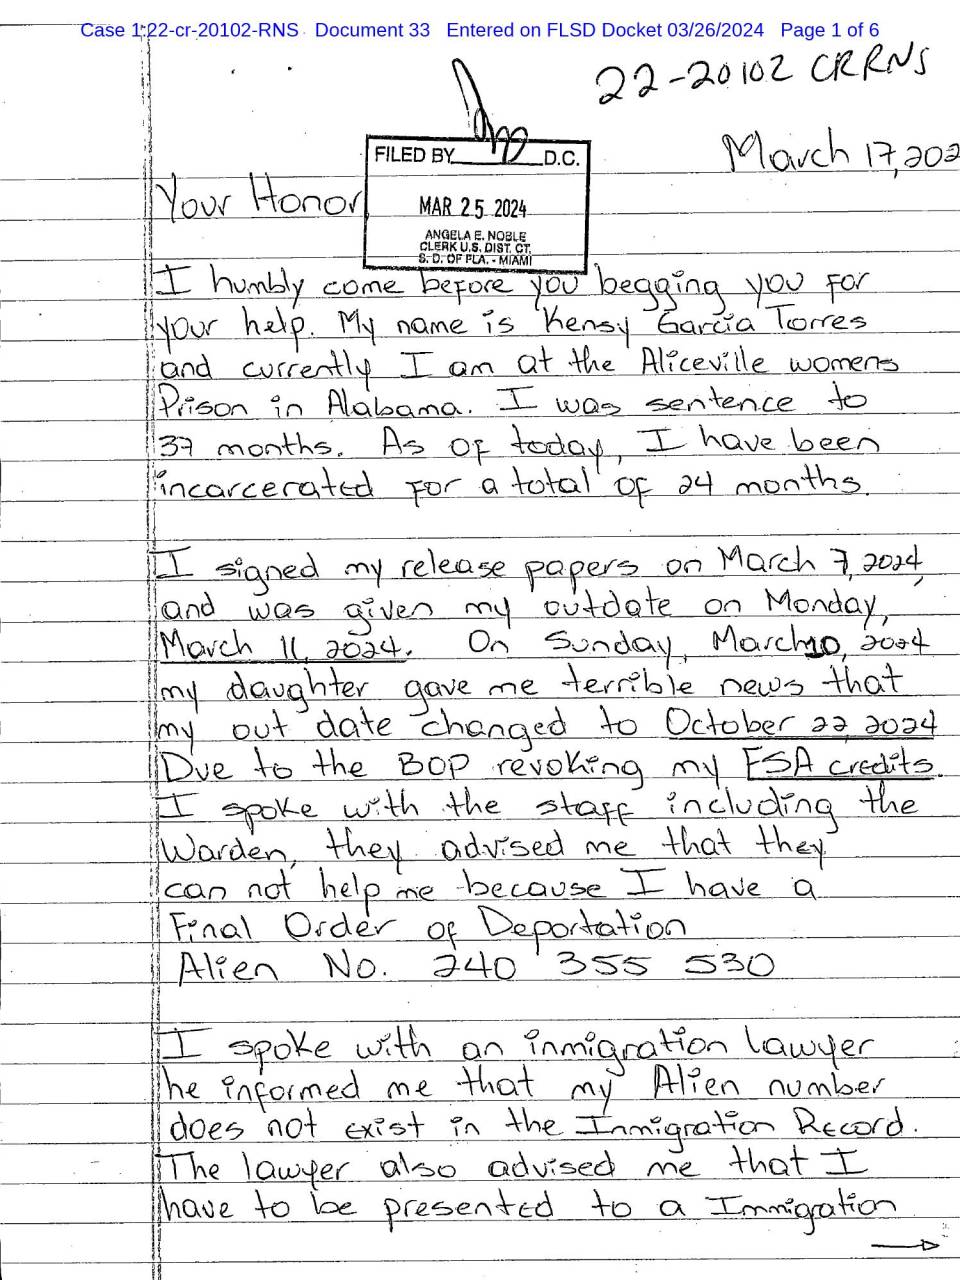 Case 1:22-cr-20102-RNS Document 33 Entered on FLSD Docket 03/26/2024 Page 1 of 6
22-20102 CRRNS
FILED BY D.C.
March 17, 202
MAR 25 2024
Your Honor
ANGELA E. NOBLE
CLERK U.S. DIST. CT.
S. D. OF FLA. - MIAMI
I humbly come before you begging you for
your help. My name is Kensy Garcia Torres
and currently I am at the Aliceville womens
Prison in Alabama. I was sentence to
37 months. As of today, I have been
incarcerated for a total of 24 months.
I signed my release papers on March 7, 2024,
and was given my outdate on Monday,
March 11, 2024. On Sunday, March 10, 2024
my daughter gave me terrible news that
my out date changed to October 22, 2024
Due to the BOP revoking my FSA credits.
I spoke with the staff including the
Warden, they advised me that they
can not help me because I have a
Final Order of Deportation
Alien No. 240 355 530
I spoke with an inmigration lawyer
he informed me that my Alien number
does not exist in the Inmigration Record.
The lawyer also advised me that I
have to be presented to a Immigration